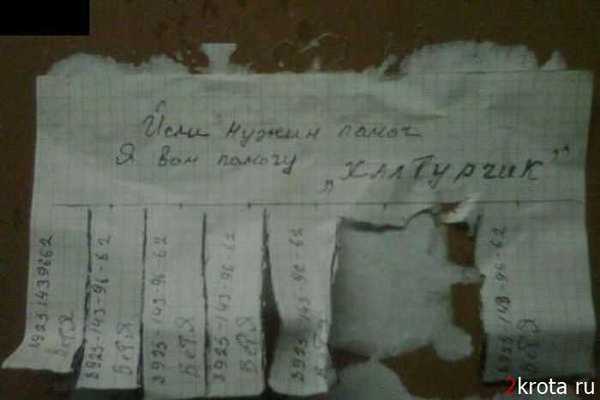 Исли нужнин памоч
Я вам памочу
„ХАЛТУРЧИК"
89251439662
ВеТЯ
8925-143-96-62
ВеТЯ
8925-143-96-62
ВеТЯ
8925-143-96-62
ВеТЯ
8925-143-96-62
ВеТЯ
8925-143-96-62
ВеТЯ
2krota ru